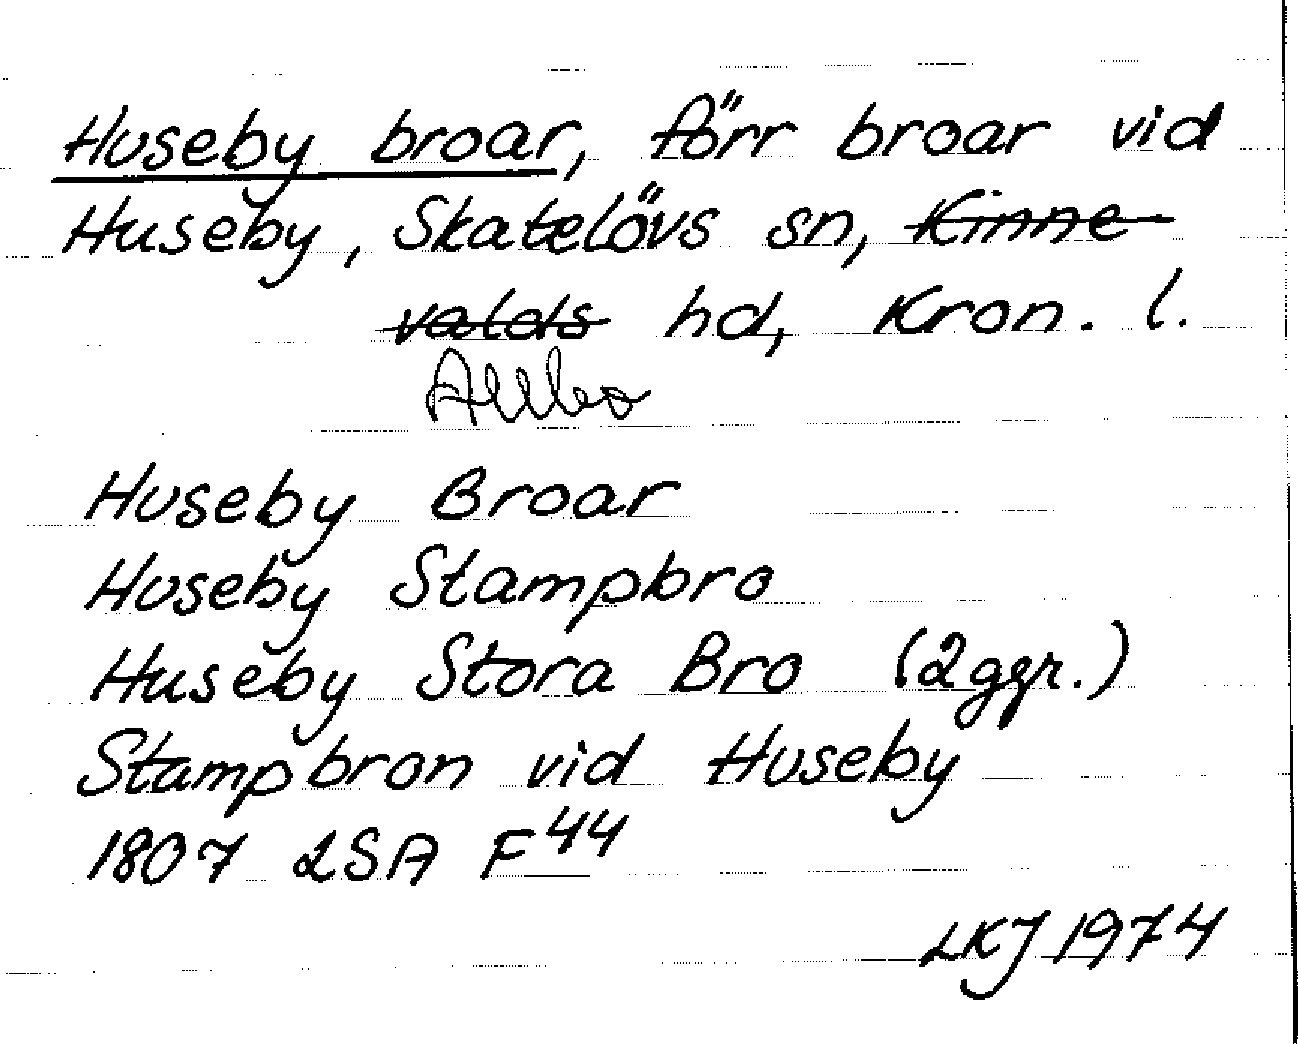 Huseby broar, förr broar vid
Huseby, Skatelövs sn, Kinne
valds hd, Kron. l.
Allbo
Huseby Broar
Huseby Stampbro
Huseby Stora Bro (2 ggr.)
Stampbron vid Huseby
1807 LSA F44
LKJ 1974